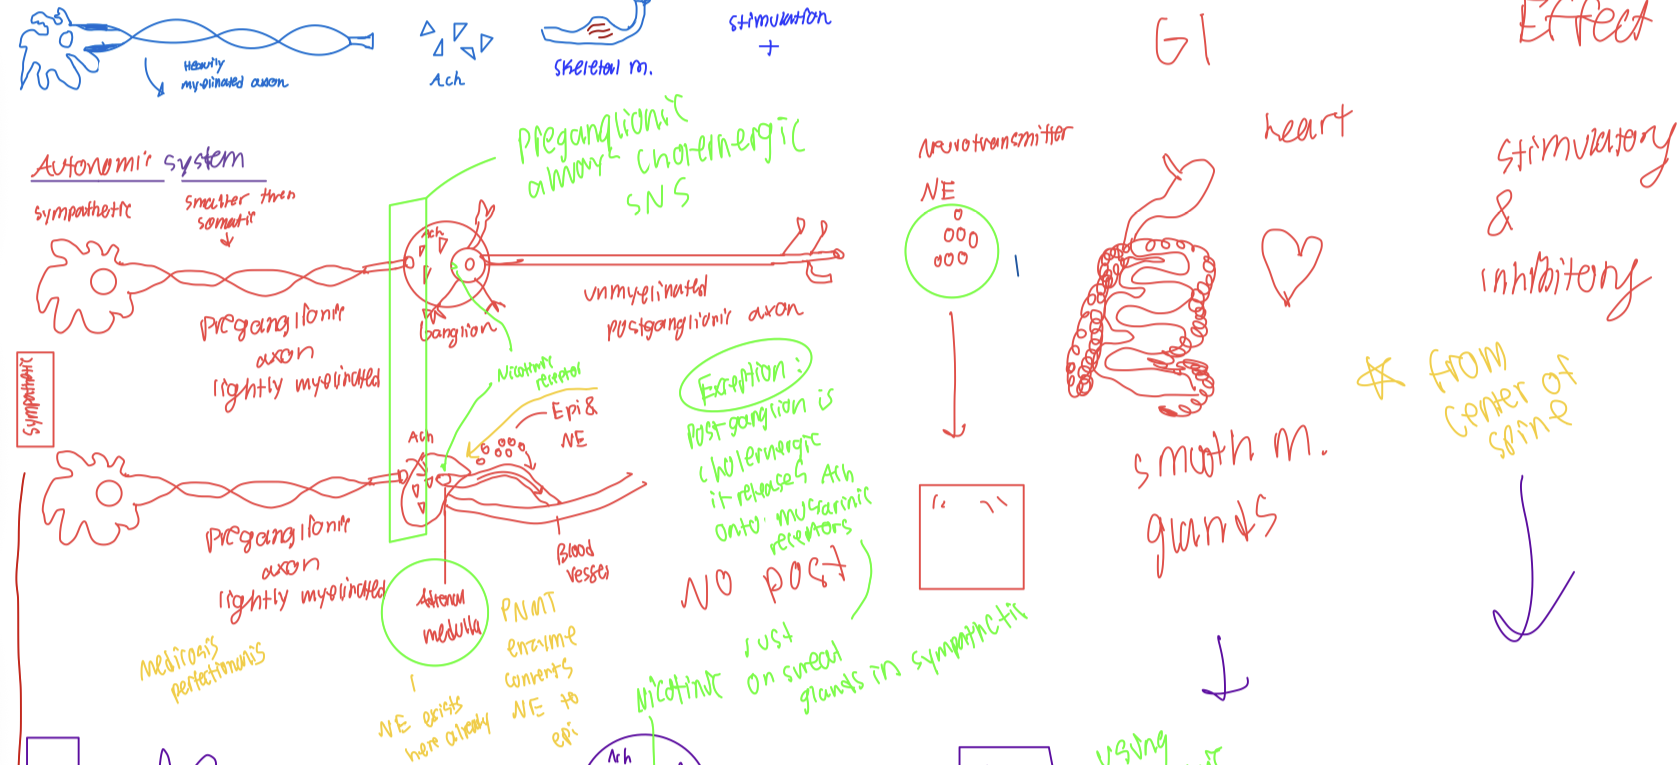 Heavily
myelinated axon
Ach
skeletal m.
stimulation
+
GI
Effect
Autonomic system
sympathetic
smaller then
somatic
Preganglionic
always cholernergic
SNS
Neurotransmitter
NE
heart
stimulatory
&
inhibitory
Ach
Ganglion
Preganglionic
axon
lightly myelinated
unmyelinated
postganglionic axon
Nicotinic
receptor
sympathetic
Exception:
Post ganglion is
cholernergic
it releases Ach
onto muscarinic
receptors
NO post
Just
on sweat
glands in sympathetic
Epi &
NE
Ach
Blood
vessel
Preganglionic
axon
lightly myelinated
Adrenal
medulla
PNMT
enzyme
converts
NE to
epi
NE exists
here already
smooth m.
glands
from
center of
spine
Nicotinic
Ach
using